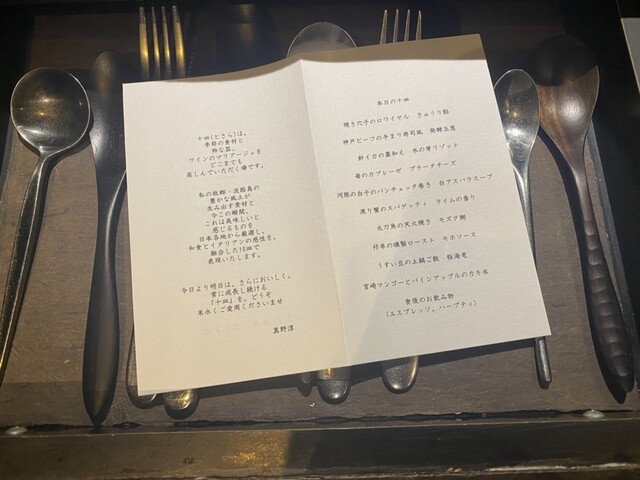 十皿(とさら)は、
季節の食材と
粋な器。
ワインのマリアージュを
どこまでも
楽しんでいただく場です。
私の故郷・淡路島の
豊かな風土が
生み出す素材と
今この瞬間、
これは美味しいと
感じるものを
日本各地から厳選し、
和食とイタリアンの感性を、
融合した10皿で
表現いたします。
今日より明日は、さらにおいしく。
常に成長し続ける
「十皿」を、どうぞ
末永くご愛用くださいませ
真野淳
本日の十皿
焼き穴子のロワイヤル きゅうり餡
神戸ビーフの手まり寿司風 発酵玉葱
針イカの藁和え 水の芽リゾット
苺のカプレーゼ ブラータチーズ
河豚の白子のパンチェッタ巻き 白アスパラスープ
渡り蟹のスパゲッティ ライムの香り
太刀魚の天火焼き モズク粥
仔羊の燻製ロースト モホソース
うすい豆の土鍋ご飯 桜海老
宮崎マンゴーとパインアップルのカキ氷
食後のお飲み物
(エスプレッソ、ハーブティ)